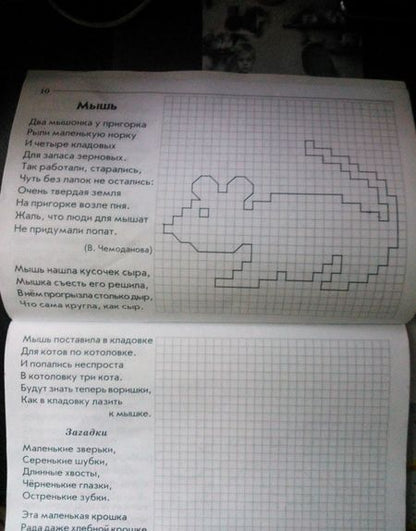 10
Мышь
Два мышонка у пригорка
Рыли маленькую норку
И четыре кладовых
Для запаса зерновых.
Так работали, старались,
Чуть без лапок не остались:
Очень твердая земля
На пригорке возле пня.
Жаль, что люди для мышат
Не придумали лопат.
(В. Чемоданова)
Мышь нашла кусочек сыра,
Мышка съесть его решила,
В нём прогрызла столько дыр,
Что сама кругла, как сыр.
Мышь поставила в кладовке
Для котов по котоловке.
И попались неспроста
В котоловку три кота.
Будут знать теперь воришки,
Как в кладовку лазить
к мышке.
Загадки
Маленькие зверьки,
Серенькие шубки,
Длинные хвосты,
Чёрненькие глазки,
Остренькие зубки.
Эта маленькая крошка
Рада даже хлебной крошке